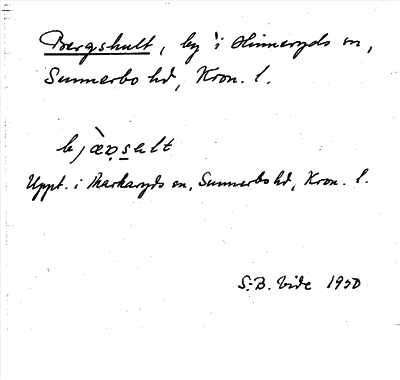 Bergshult, by i Hinneryds sn,
Sunnerbo hd, Kron. l.
bjæ̀ʀ̣s̱ult
Uppt. i Markaryds sn, Sunnerbo hd, Kron. l.
S.-B. Vide 1950